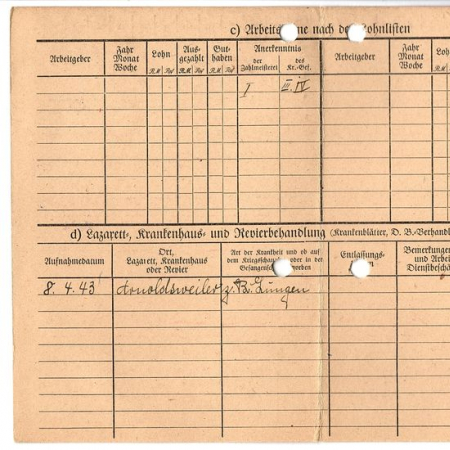 c) Arbeits ne nach de Lohnlisten
Arbeitgeber
Jahr
Monat
Woche
Lohn
R.M. Rpf
Aus-
gezahlt
R.M. Rpf
Gut-
haben
R.M. Rpf
Anerkenntnis
der
Zahlmeisterei
des
Kr.-Gef.
Arbeitgeber
Jahr
Monat
Woche
Loh
R.M.
I III. IV
d) Lazarett-, Krankenhaus- und Revierbehandlung (Krankenblätter, D. B.-Verhandl
Aufnahmedatum
Ort,
Lazarett, Krankenhaus
oder Revier
Art der Krankheit und ob auf
dem Kriegsschau oder in der
Gefangensch worben
Entlassungs-
Bemerkungen
und Arbei
Dienstbeschä
8. 4. 43 Arnoldsweiler z. B. Lungen